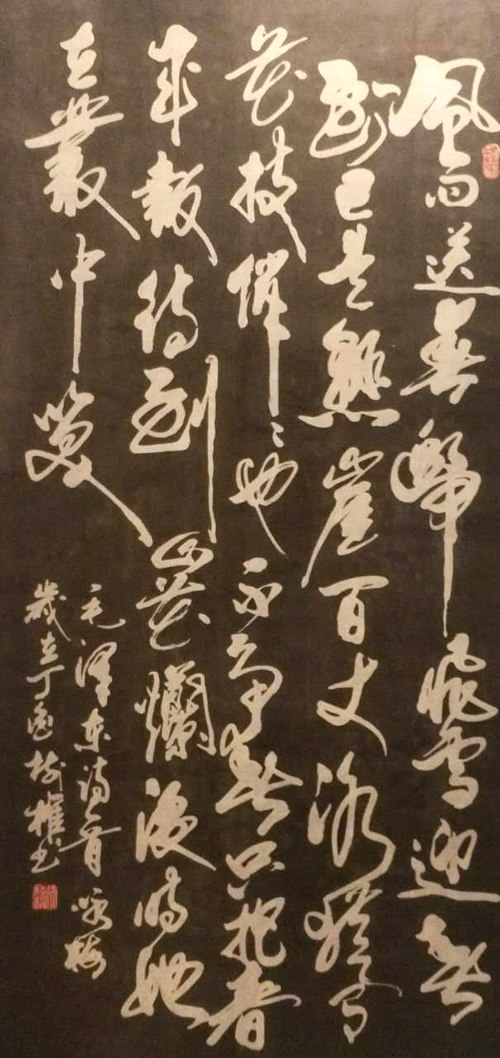 風雨送春歸飛雪迎春
到已是懸崖百丈冰猶有
花枝俏〻也不爭春只把春
来報待到山花爛漫時她
在叢中笑
毛澤东詩首咏梅
歲在丁書